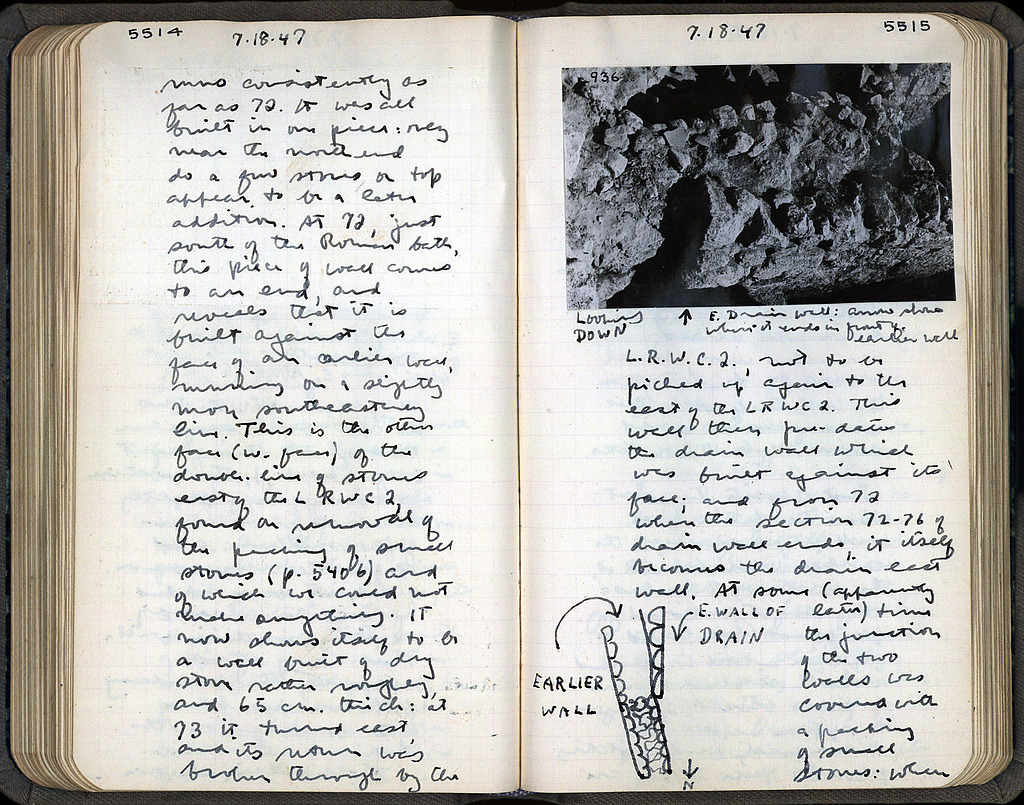 5514
7.18.47
runs consistently as
far as 72. It was all
built in one piece: only
near the north end
do a few stones on top
appear to be a later
addition. At 72, just
south of the Roman bath,
this piece of wall comes
to an end, and
reveals that it is
built against the
face of an earlier wall,
running on a slightly
more southeasterly
line. This is the other
face (w. face) of the
double line of stones
east of the L R W C 2,
found on removal of
the packing of small
stones (p. 5406) and
of which we could not
make anything. It
now shows itself to be
a wall built of dry
stone rather roughly,
and 65 cm. thick: at
73 it turned east,
and its return was
broken through by the
7.18.47
5515
936
Looking
DOWN
↑ E. Drain wall: arrow shows
where it ends in front of
earlier wall
L.R.W.C.2., not to be
picked up again to the
east of the LRWC2. This
wall then pre-dates
the drain wall which
was built against its
face; and from 72
when the section 72-76 of
drain wall ends, it itself
becomes the drain east
wall. At some (apparently
later) time
the junction
of the two
walls was
covered with
a packing
of small
stones: when
E. WALL OF
DRAIN
EARLIER
WALL
N